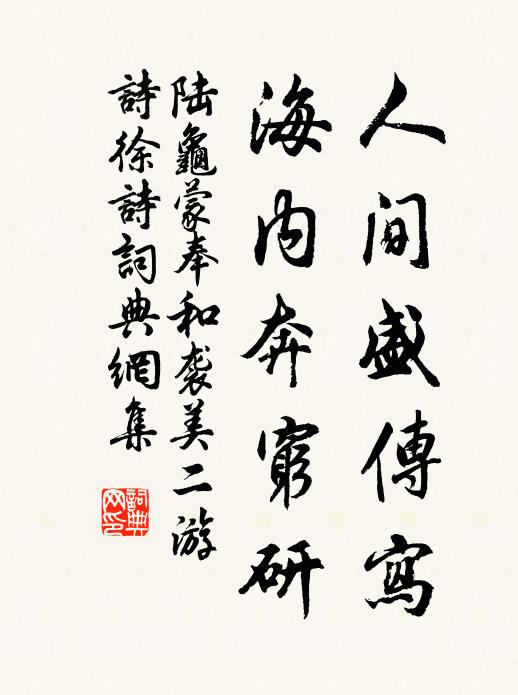 人間盛傳寫
海内奔窮研
陆龜蒙奉和袭美二游
詩徐詩詞典網集
詞典網印